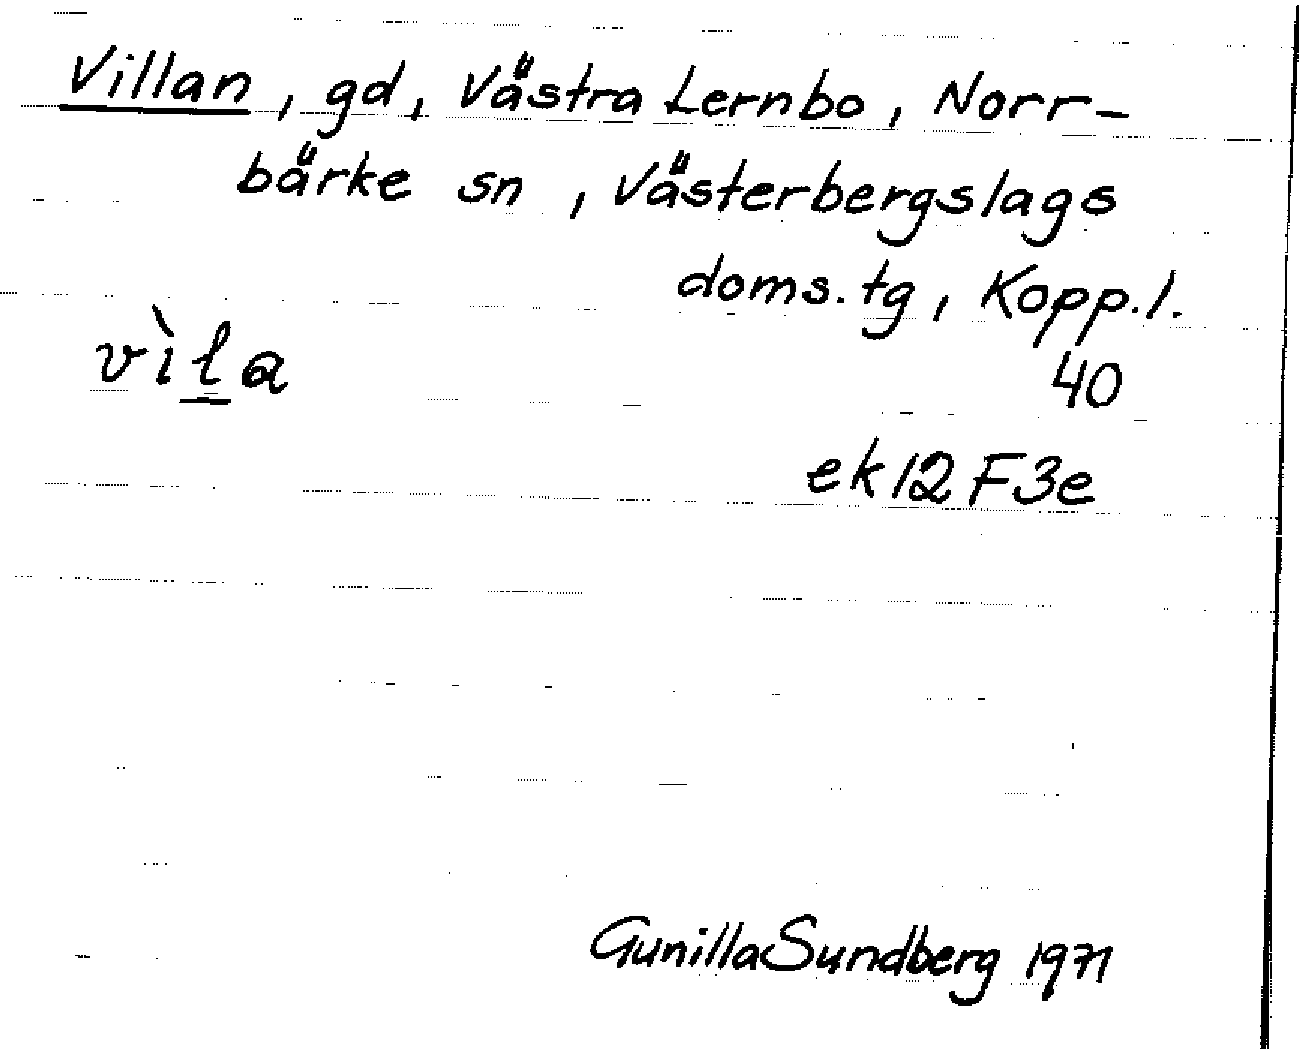 Villan, gd, Västra Lernbo, Norr-
bärke sn, Västerbergslags
doms.tg, Kopp.l.
vìl̲a
40
ek 12 F3e
Gunilla Sundberg 1971